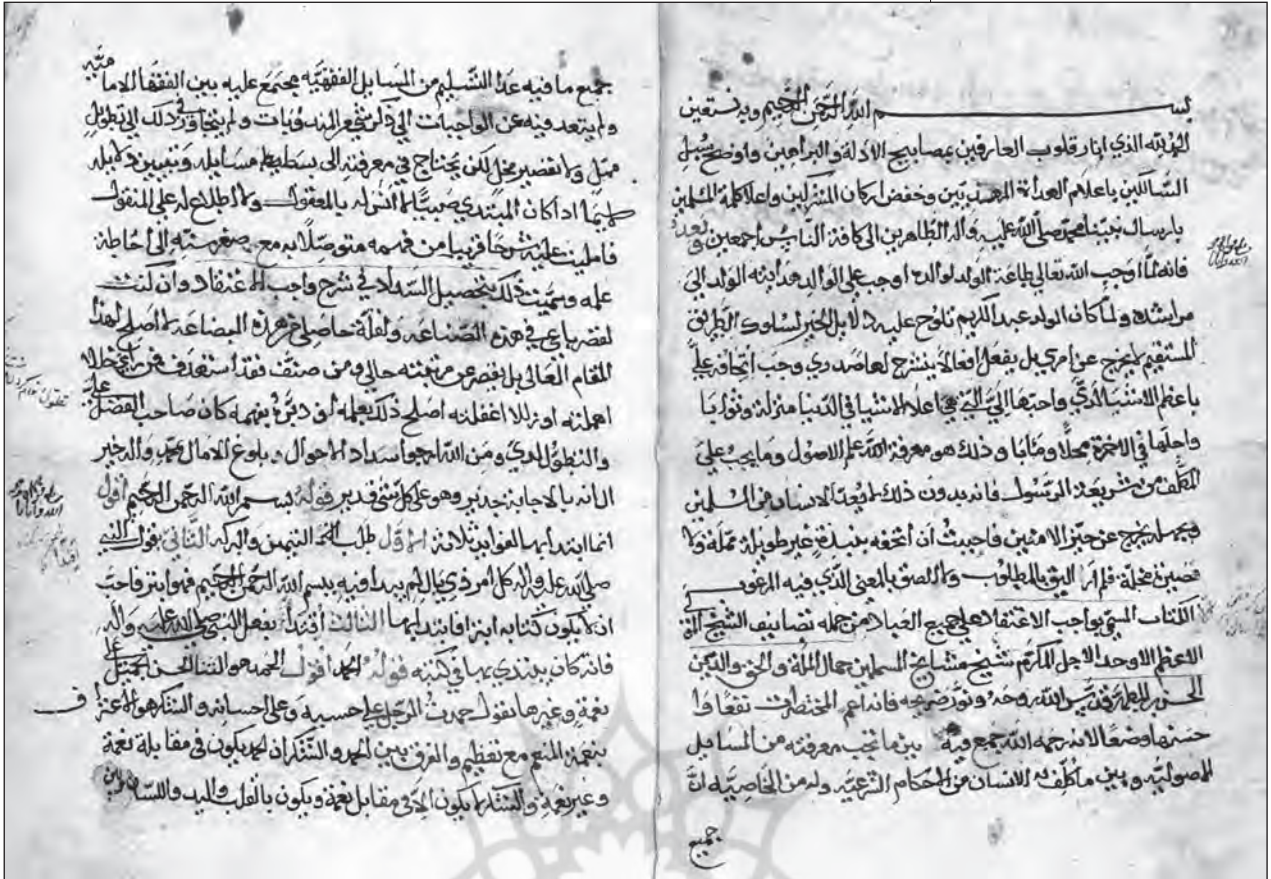 بسم الله الرحمن الرحيم وبه نستعين
الحمد لله الذي انار قلوب العارفين بمصابيح الادلة والبراهين واوضح سبل
السالكين باعلام الهداة المهتدين وخفض اركان المشركين واعلا كلمة المسلمين
بارسال نبينا محمد صلى الله عليه وآله الطاهرين الى كافة الناس اجمعين وبعد
فانه لما اوجب الله تعالى طاعة الولد لوالده اوجب على الوالد هدايته الولد الى
مراشده ولما كان الولد عبد الكريم تلوح عليه دلايل الخير لسلوك الطريق
المستقيم لا يخرج عن امري بل يفعل افعالا ينشرح لها صدري وجب اتحافه علي
باعظم الاشياء لدي واحبها الي التي هي اعلا الاشيا في الدنيا منزلة وثوابا
واجلها في الاخرة محلا ومآبا وذلك هو معرفة الله علم الاصول وما يجب على
المكلف من شريعة الرسول فانه بدون ذلك لا يعد الانسان من المسلمين
وبجهله يخرج عن حيز الامنين فاحببت أن أتحفه بنبذة غير طويلة مملة ولا
قصيرة مخلة فلم ار اليق بالمطلوب ولا الصق بالمعنى الذي فيه المرغوب
الكتاب المسمى بواجب الاعتقاد على جميع العباد من جملة تصانيف الشيخ
الاعظم الاوحد الاجل المكرم شيخ مشايخ المسلمين جمال الملة والحق والدين
الحسن بن المطهر قدس الله روحه ونور ضريحه فانه اعم المختصرات نفعا وا
حسنها وضعا لانه رحمه الله جمع فيه بين ما تجب معرفته من المسايل
الاصولية وبين ما كلف به الانسان من الاحكام الشرعية وله من الخاصيه ان
جميع
جميع ما فيه عدا التسليم من المسايل الفقهيه مجتمع عليه بين الفقها الاماميه
ولم يتعد فيه عن الواجبات الى ذكر شي من المندوبات ولم يتجاوز في ذلك الى تطويل
ممل ولا تقصير مخل لكن يحتاج في معرفته الى بسط مسايله وتبيين دلايله
طيما اذا كان المبتدي صبيا لا انس له بالمعقول ولا اطلاع له على المنقول
فامليت عليه شرحا قريبا من فهمه متوصلا به مع صغر سنه الى احاطة
علمه وسميت ذلك بتحصيل السداد في شرح واجب الاعتقاد وان كنت
لقصر باعي في هذه الصناعه ولقلة حاصلي من هذه البضاعه لا اصلح لهذا
المقام العالي بل يقصر عن مرتبته حالي ومن صنف فقد استهدف فمن راى خللا
اهملته او زللا اغفلته اصلح ذلك بعلمه او دبره بفهمه كان صاحب الفضل علي
والتطول لدي ومن الله ارجو سداد الاحوال وبلوغ الامال بمحمد واله خير
الانه بالاجابة جدير وهو على كل شي قدير قوله بسم الله الرحمن الرحيم اقول
انما ابتدأ بها لفوايد ثلاثة الاول طلب التيمن والبركه الثاني قول النبي
صلى الله عليه واله كل امر ذي بال لم يبدا فيه ببسم الله الرحمن الرحيم فهو ابتر فاحب
ان لا يكون كتابه ابتر فابتدا بها الثالث اقتداء بفعل النبي صلى الله عليه وآله
فانه كان يبتدي بها في كتبه قوله الحمد اقول الحمد هو الثنا الحسن بجميل على
نعمة وغيرها تقول حمدت الرجل على حسبه وعلى احسانه والشكر هو الاعتراف
بنعمة المنعم مع تعظيم والفرق بين الحمد والشكر ان الحمد يكون في مقابلة نعمة
وغير نعمة والشكر لا يكون الا في مقابل نعمة ويكون بالقلب واليد واللسان